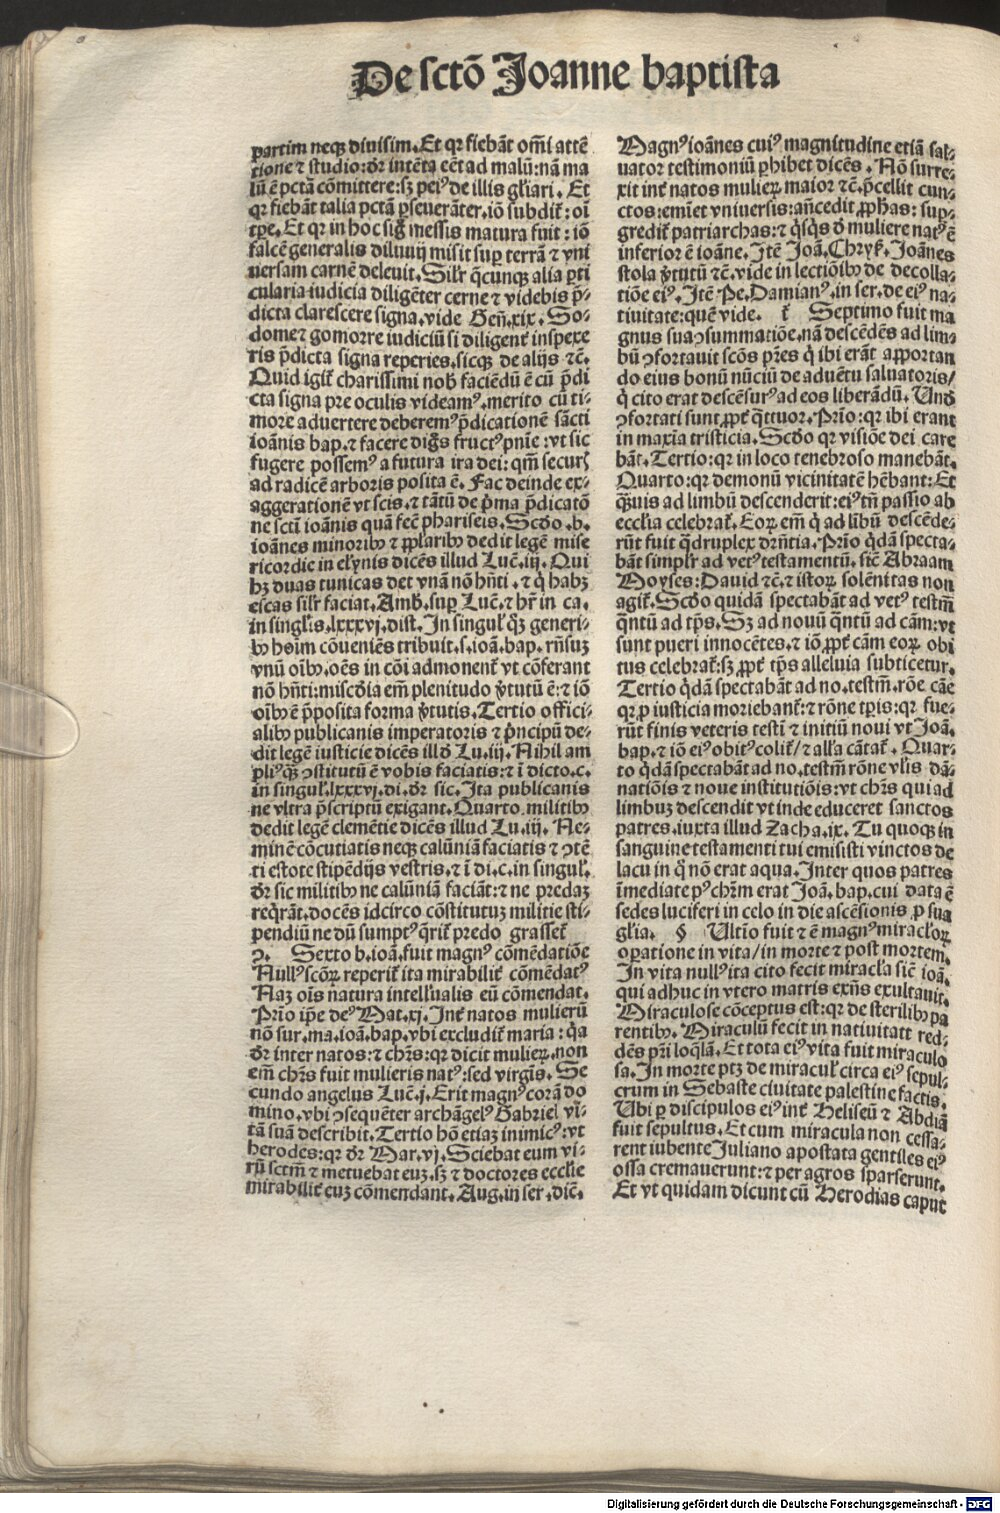 De sctō Joanne baptista
partim neqꝫ diuisim. Et qꝛ fiebāt om̄i attē
tione ⁊ studio: dr̄ intēta eēt ad malū: nā ma
lū ē pctā cōmittere: sꝫ peiꝰ de illis gl̄iari. Et
qꝛ fiebāt talia pctā ꝑseuerāter, iō subdit̄: oī
tꝑe. Et qꝛ in hoc siḡ messis matura fuit: iō
falcē generalis diluuij misit suꝑ terrā ⁊ vni
uersam carnē deleuit. Sil̄r q̄cunqꝫ alia ꝑti
cularia iudicia diligēter cerne ⁊ videbis p̄⸗
dicta clarescere signa, vide Gen̄. xix. So⸗
dome ⁊ gomorre iudiciū si diligent̄ inspexe
ris p̄dicta signa reperies. sicqꝫ de alijs ⁊c̄.
Quid igit̄ charissimi nob̄ faciēdū ē cū p̄di
cta signa pre oculis videamꝰ, merito cū ti⸗
more aduertere deberemꝰ p̄dicationē sācti
ioānis bap. ⁊ facere diḡs fructꝰ pn̄ie: vt sic
fugere possemꝰ a futura ira dei: qm̄ securꝭ
ad radicē arboris posita ē. Fac deinde ex⸗
aggerationē vt scis. ⁊ tātū de p̄ma p̄dicatō
ne sctī ioānis quā fec̄ phariseis. Scd̄o .b.
ioānes minoribꝫ ⁊ ꝓpl̄aribꝫ dedit legē mise
ricordie in elynis dicēs illud Luc̄. iij. Qui
hꝫ duas tunicas det vnā nō hn̄ti. ⁊ q̄ habꝫ
escas sil̄r faciat. Amb̄. suꝑ Luc̄. ⁊ hr̄ in ca.
in singl̄is. lxxxvj. dist. In singul̄ qꝫ generi⸗
bꝫ hoīm cōueniēs tribuit. s. ioā. bap. rn̄suꝫ
vnū oībꝫ. oēs in cōi admonent̄ vt cōferant
nō hn̄ti: misc̄dia em̄ plenitudo v̄tutū ē: ⁊ iō
oībꝫ ē p̄posita forma v̄tutis. Tertio offici⸗
alibꝫ publicanis imperatoris ⁊ p̄ncipū de⸗
dit legē iusticie dicēs ill̄d Lu. iij. Nihil am
pliꝰ qꝫ ꝯstitutū ē vobis faciatis: ⁊ ī dicto. c.
in singul̄. lxxxvj. di. dr̄ sic. Ita publicanis
ne vltra p̄scriptū exigant. Quarto militibꝫ
dedit legē clemētie dicēs illud Lu. iij. Ne⸗
minē cōcutiatis neqꝫ calūniā faciatis ⁊ ꝯtē
ti estote stipēdijs vestris. ⁊ ī di. c. in singul̄.
dr̄ sic militibꝫ ne calūniā faciāt: ⁊ ne predaꝫ
req̄rāt. docēs idcirco cōstitutuꝫ militie sti⸗
pendiū ne dū sumptꝰ q̄rit̄ predo grasset̄
ꝯ. Sexto b. ioā. fuit magnꝰ cōmēdatiōe
Nullꝰ scōꝝ reperit̄ ita mirabilit̄ cōmēdatꝰ
Naꝫ oīs natura intell̄ualis eū cōmendat.
Prīo ip̄e deꝰ Mat. xj. Int̄ natos mulierū
nō sur. ma. ioā. bap. vbi excludit̄ maria: q̄a
dr̄ inter natos: ⁊ chr̄s: qꝛ dicit mulieꝝ. non
em̄ chr̄s fuit mulieris natꝰ: sed virgīs. Se
cundo angelus Luc̄. j. Erit magnꝰ corā do
mino. vbi ꝯsequēter archāgelꝰ Gabriel vi⸗
tā suā describit. Tertio hō etiaꝫ inimicꝰ: vt
herodes: qꝛ dr̄ Mar. vj. Sciebat eum vi⸗
rū sctm̄ ⁊ metuebat euꝫ. sꝫ ⁊ doctores eccl̄ie
mirabilit̄ euꝫ cōmendant. Aug. in ser. dic̄.
Magnꝰ ioānes cuiꝰ magnitudine etiā sal⸗
uator testimoniū ꝑhibet dicēs. Nō surre⸗
xit int̄ natos mulieꝝ maior ⁊c̄. p̄cellit cun⸗
ctos: emīet vniuersis: añcedit ꝓph̄as: suꝑ⸗
gredit̄ patriarchas: ⁊ q̄sq̄s d̄ muliere natꝰ ē
inferior ē ioāne. Itē Joā. Chryꝭ. Joānes
stola v̄tutū ⁊c̄. vide in lectiōibꝫ de decolla⸗
tiōe eiꝰ. Itē Pe. Damianꝰ. in ser. de eiꝰ na⸗
tiuitate: quē vide. Septimo fuit ma
gnus sua ꝯsummatiōe. nā descēdēs ad lim⸗
bū ꝯfortauit scōs pr̄es q̄ ibi erāt apportan
do eius bonū nūciū de aduētu saluatoris/
q̄ cito erat descēsurꝰ ad eos liberādū. Und̄
ꝯfortati sunt ꝓpt̄ q̄ttuor. Prīo: qꝛ ibi erant
in maxīa tristicia. Scd̄o qꝛ visiōe dei care
bāt. Tertio: qꝛ in loco tenebroso manebāt.
Quarto: qꝛ demonū vicinitatē hēbant: Et
q̄muis ad limbū descenderit: eiꝰ tn̄ passio ab
eccl̄ia celebrat̄. Eoꝝ em̄ q̄ ad līmbū descēde⸗
rūt fuit q̄druplex dr̄ntia. Prīo q̄dā specta⸗
bāt simpl̄r ad vetꝰ testamentū. sic̄ Abraam
Moyses: Dauid ⁊c̄. ⁊ istoꝝ solēnitas non
agit̄. Scd̄o quidā spectabāt ad vetꝰ testm̄
q̄ntū ad tp̄s. Sꝫ ad nouū q̄ntū ad cām: vt
sunt pueri innocētes. ⁊ iō ꝓpt̄ cām eoꝝ obi
tus celebrat̄: sꝫ ꝓpt̄ tp̄s alleluia subticetur.
Tertio q̄dā spectabāt ad no. testm̄. rōe cāe
qꝛ ꝓ iusticia moriebant̄: ⁊ rōne tꝑis: qꝛ fue⸗
rūt finis veteris testī ⁊ initiū noui vt Joā.
bap. ⁊ iō eiꝰ obitꝰ colit̄/ ⁊ all̄a cātat̄. Quar⸗
to q̄dā spectabāt ad no. testm̄ rōne vl̄is dā⸗
natiōis ⁊ noue institutiōis: vt chr̄s qui ad
limbuꝫ descendit vt inde educeret sanctos
patres. iuxta illud Zacha. ix. Tu quoqꝫ in
sanguine testamenti tui emisisti vinctos de
lacu in q̄ nō erat aqua. Inter quos patres
īmediate pꝰ chr̄m erat Joā. bap. cui data ē
sedes luciferi in celo in die ascēsionis ꝓ sua
gl̄ia. § Ultīo fuit ⁊ ē magnꝰ miracl̄oꝝ
oꝑatione in vita/ in morte ⁊ post mortem.
In vita nullꝰ ita cito fecit miracl̄a sic̄ ioā.
qui adhuc in vtero matris exn̄s exultauit.
Miraculose cōceptus est: qꝛ de sterilibꝫ pa
rentibꝫ. Miraculū fecit in natiuitatt red⸗
dēs pr̄i loq̄lā. Et tota eiꝰ vita fuit miraculo
sa. In morte ptꝫ de miracul̄ circa eiꝰ sepul⸗
crum in Sebaste ciuitate palestine factis.
Ubi ꝑ discipulos eiꝰ int̄ Heliseū ⁊ Abdiā
fuit sepultus. Et cum miracula non cessa⸗
rent iubente Juliano apostata gentiles eiꝰ
ossa cremauerunt: ⁊ per agros sparserunt.
Et vt quidam dicunt cū Herodias caput
Digitalisierung gefördert durch die Deutsche Forschungsgemeinschaft - DFG